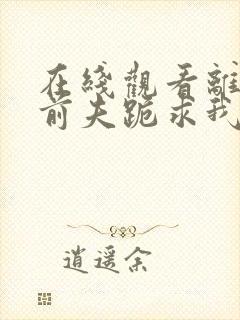 在綫觀看離
前夫跪求我
逍遥余